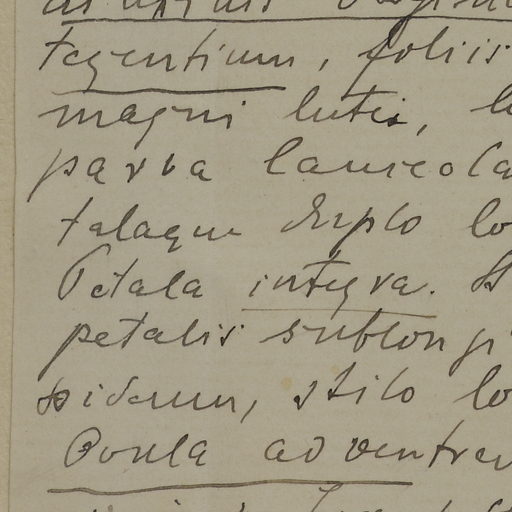 tegentium, foliis
magni lutei,
parva lanceola
talaque duplo lo
Petala integra.
petalis sublongi
stilo lo
Ovula ad ventrem